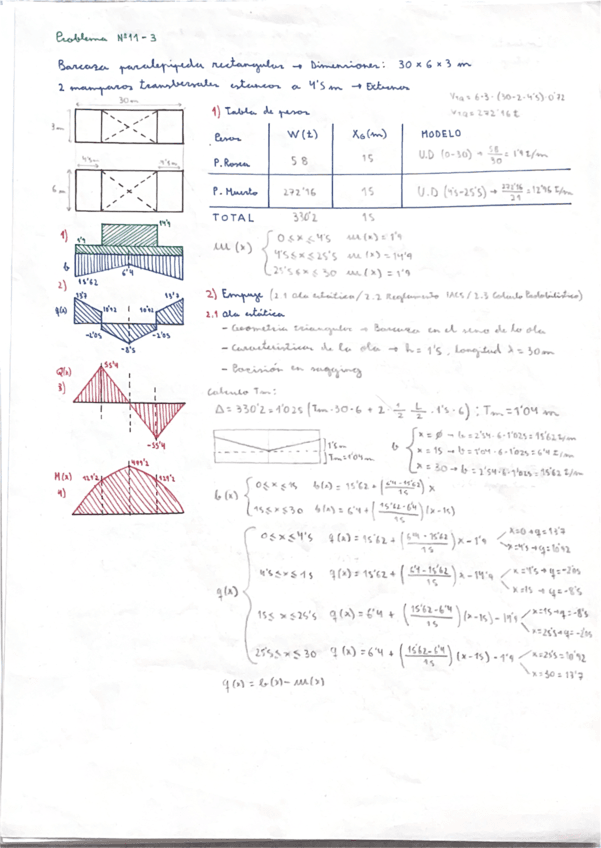 Problema Nº11-3
Barcaza paralepípeda rectangular → Dimensiones: 30 × 6 × 3 m
2 mamparos transversales estancos a 4'5 m → Extremos
VTQ = 6·3·(30-2·4'5)·0'72
VTQ = 272'16 t
30 m
3m
4'5m
4'5m
6m
1) Tabla de pesos
Pesos W(t) XG(m) MODELO
P. Rosca 58 15 U.D (0-30) → 58/30 = 1'9 t/m
P. Muerto 272'16 15 U.D (4'5-25'5) → 272'16/21 = 12'96 t/m
TOTAL 330'2 15
m(x) { 0≤x≤4'5 m(x)=1'9
4'5≤x≤25'5 m(x)=14'9
25'5≤x≤30 m(x)=1'9
1)
14'9
1'9
b
15'62
6'4
2)
q(x)
13'7
10'92
10'92
13'7
-2'05
-2'05
-8'5
Q(x)
3)
55'4
-55'4
M(x)
4)
429'2
499'2
429'2
2) Empuje (2.1 Ola estática / 2.2 Reglamento IACS / 2.3 Calculo Probabilístico)
2.1 Ola estática
- Geometría triangular → Barcaza en el seno de la ola
- Características de la ola → h = 1'5, longitud λ = 30m
- Posición en sagging
Calculo Tm:
Δ = 330'2 = 1'025 (Tm·30·6 + 2·1/2·L/2·1'5·6) : Tm = 1'04 m
1'5m
Tm=1'04m
b { x = ø → b = 2'54·6·1'025 = 15'62 t/m
x = 15 → b = 1'04·6·1'025 = 6'4 t/m
x = 30 → b = 2'54·6·1'025 = 15'62 t/m
b(x) { 0≤x≤15 b(x) = 15'62 + (6'4-15'62/15) x
15≤x≤30 b(x) = 6'4 + (15'62-6'4/15)(x-15)
q(x) { 0≤x≤4'5 q(x) = 15'62 + (6'4-15'62/15) x - 1'9 x=0 → q=13'7
x=4'5 → q=10'92
4'5≤x≤15 q(x) = 15'62 + (6'4-15'62/15) x - 14'9 x=4'5 → q=-2'05
x=15 → q=-8'5
15≤x≤25'5 q(x) = 6'4 + (15'62-6'4/15)(x-15) - 14'9 x=15 → q=-8'5
x=25'5 → q=-2'05
25'5≤x≤30 q(x) = 6'4 + (15'62-6'4/15)(x-15) - 1'9 x=25'5 = 10'92
x=30 = 13'7
q(x) = b(x) - m(x)